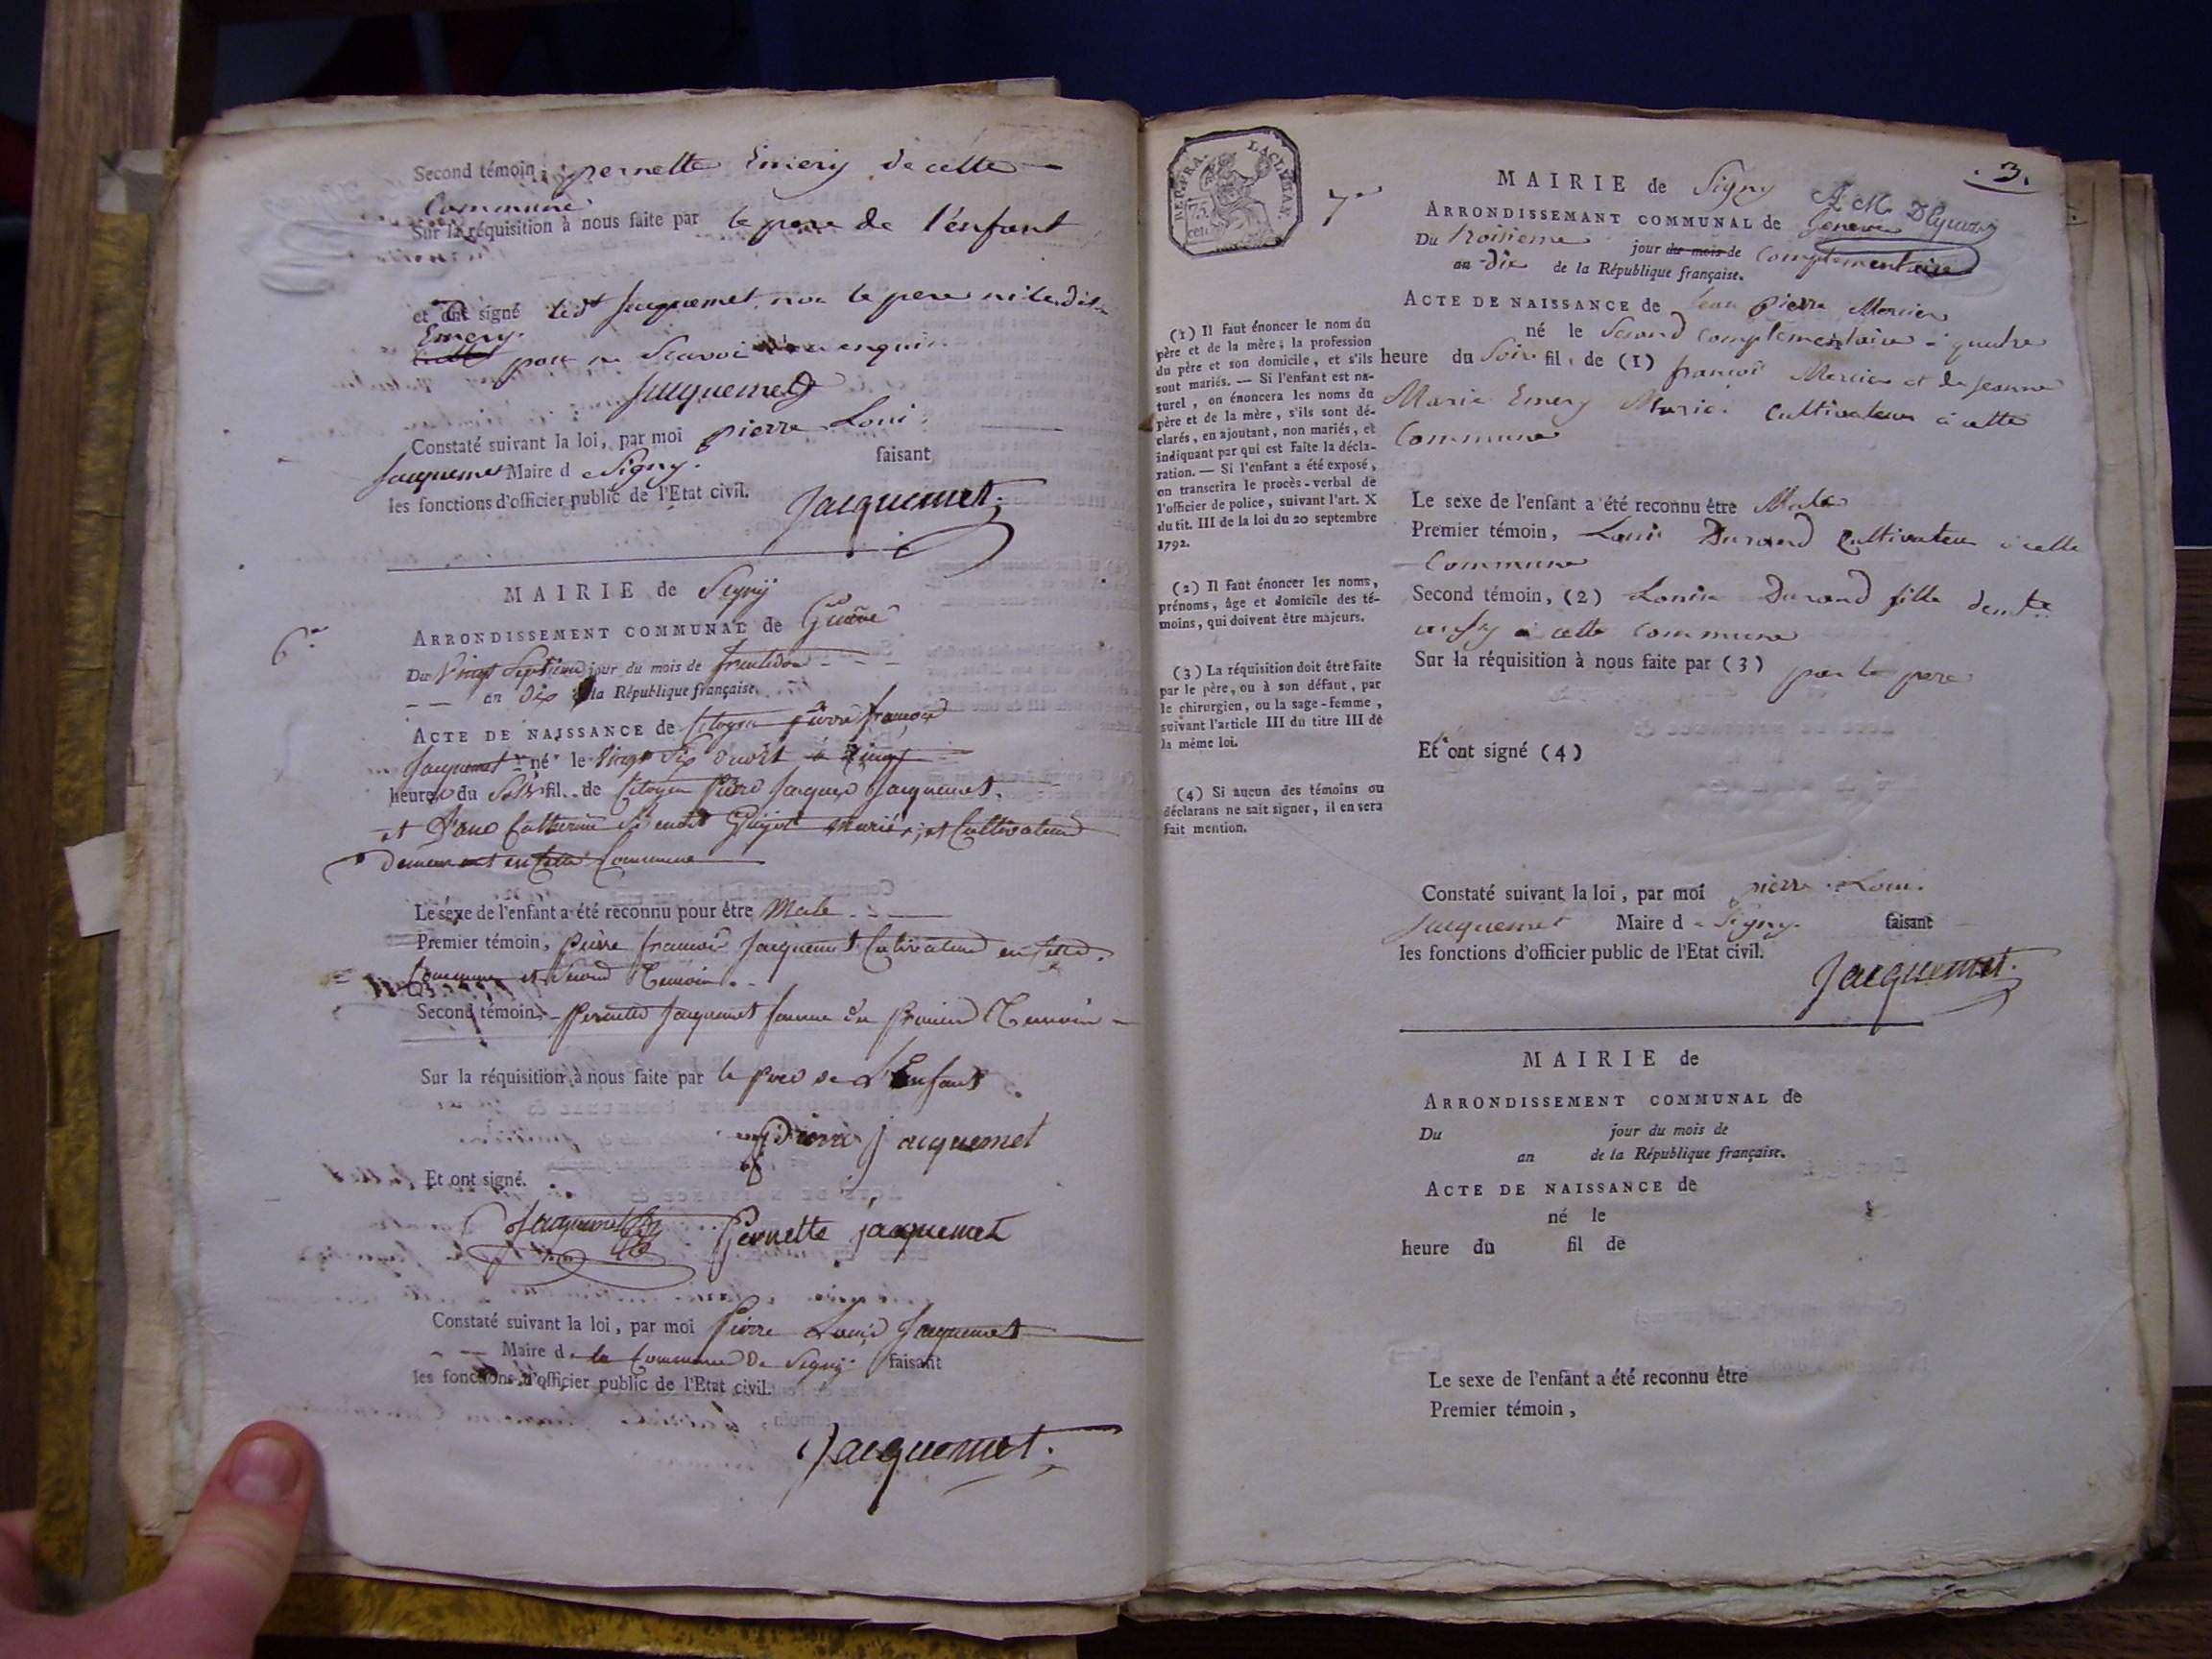 Second témoin, pernette Emery de cette
Commune
Sur la réquisition à nous faite par le pere de l'enfant
et ont signé led.t Jacquemet, non le pere ni ladite
Emery.
pour ne Scavoir enquis
Jacquemet
Constaté suivant la loi, par moi pierre Loui.
Jacquemet Maire de Segny. faisant
les fonctions d'officier public de l'Etat civil.
Jacquemet
MAIRIE de Segny
6.e
ARRONDISSEMENT COMMUNAL de
Du Vingt Septieme jour du mois de fructidor
an Dix la République française.
ACTE DE NAISSANCE de Citoyen pierre françois
Jacquemet né le Vingt Six dudit à
heures du Soir fil de Citoyen Pierre Jacques Jacquemet.
et D'anne Catherine mariés, et Cultivateur
demeurant en Cette Commune
Le sexe de l'enfant a été reconnu pour être Male
Premier témoin, pierre francois Jacquemet Cultivateur en Cette
Commune et Second Temoin.
Second témoin, Pernette Jacquemet femme du Premier Temoin
Sur la réquisition à nous faite par le pere de L'Enfant
pierre jacquemet
Et ont signé.
Jacquemet Pernette jacquemet
Constaté suivant la loi, par moi Pierre Louis Jacquemet
Maire de la Commune De Segny faisant
les fonctions d'officier public de l'Etat civil.
Jacquemet.
REP. FRA.
75
cent.
7.e
.3.
MAIRIE de Signy
ARRONDISSEMANT COMMUNAL de Geneve
Du troisieme jour du mois de Complementaire
an dix de la République française.
ACTE DE NAISSANCE de Jean pierre Mercier
né le Second complementaire à quatre
heure du Soir fil de (1) francois Mercier et de Jeanne
Marie Emery Mariés Cultivateur à cette
Commune
Le sexe de l'enfant a été reconnu être Male
Premier témoin, Louis Durand Cultivateur à cette
Commune
Second témoin, (2) Louise Durand fille
à cette commune
Sur la réquisition à nous faite par (3) par le pere
Et ont signé (4)
Constaté suivant la loi, par moi pierre Loui.
Jacquemet Maire de Signy. faisant
les fonctions d'officier public de l'Etat civil.
Jacquemet.
(1) Il faut énoncer le nom du
père et de la mère; la profession
du père et son domicile, et s'ils
sont mariés. — Si l'enfant est na-
turel, on énoncera les noms du
père et de la mère, s'ils sont dé-
clarés, en ajoutant, non mariés, et
indiquant par qui est faite la décla-
ration. — Si l'enfant a été exposé,
on transcrira le procès-verbal de
l'officier de police, suivant l'art. X
du tit. III de la loi du 20 septembre
1792.
(2) Il faut énoncer les noms,
prénoms, âge et domicile des té-
moins, qui doivent être majeurs.
(3) La réquisition doit être faite
par le père, ou à son défaut, par
le chirurgien, ou la sage-femme,
suivant l'article III du titre III de
la même loi.
(4) Si aucun des témoins ou
déclarans ne sait signer, il en sera
fait mention.
MAIRIE de
ARRONDISSEMENT COMMUNAL de
Du jour du mois de
an de la République française.
ACTE DE NAISSANCE de
né le
heure du fil de
Le sexe de l'enfant a été reconnu être
Premier témoin,